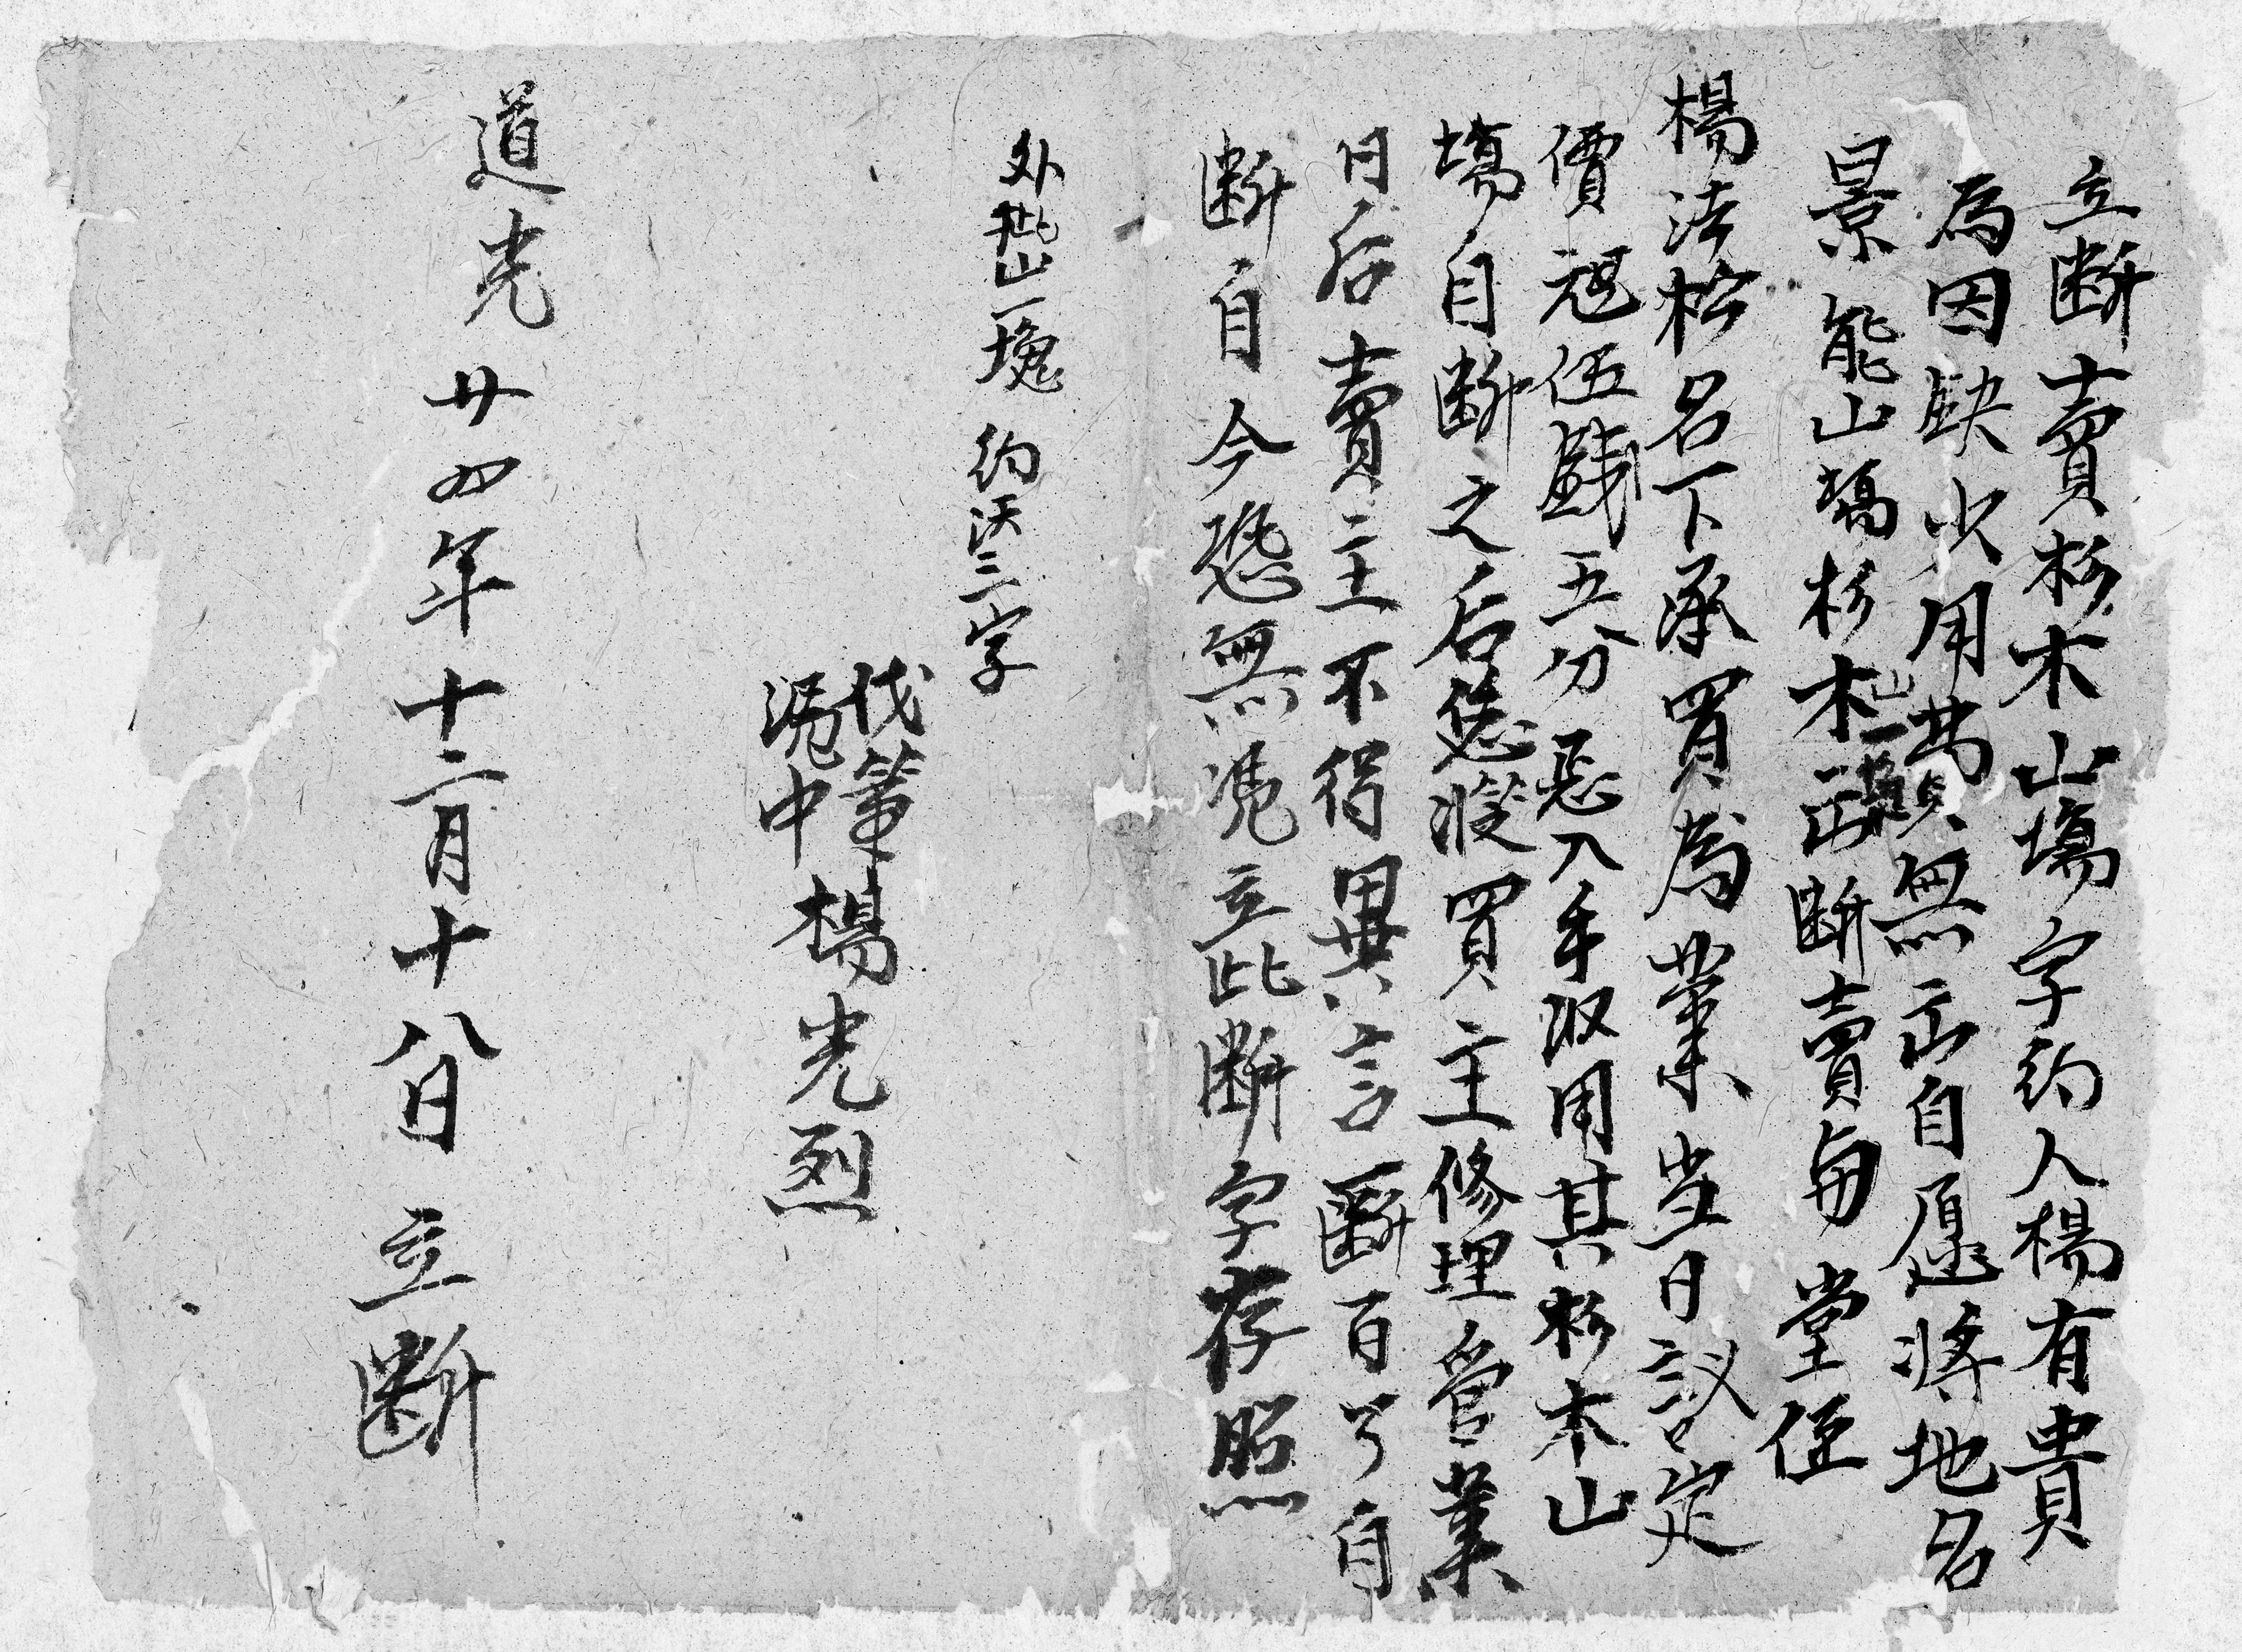 立断賣杉木山塲字約人楊有貴
為因缺少用費無出自愿將地名
景能山塲杉木山一塊出断賣与堂侄
楊法松名下承買為業当日議定
價艮伍錢五分是入手収用其杉木山
塲自断之后凴從買主修理管業
日后賣主不得異言一断百了自
断自今恐無凴立此断字存照
外批山一塊 約沃三字
代筆
凴中 楊光烈
道光廿四年十二月十八日 立断